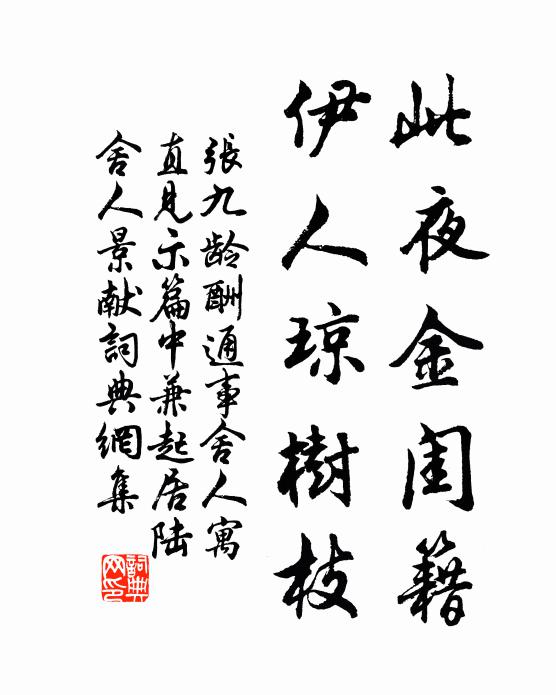 此夜金闺籍
伊人琼樹枝
張九龄酬通事舍人寓
直見示篇中兼起居陆
舍人景献詞典網集
詞典網印